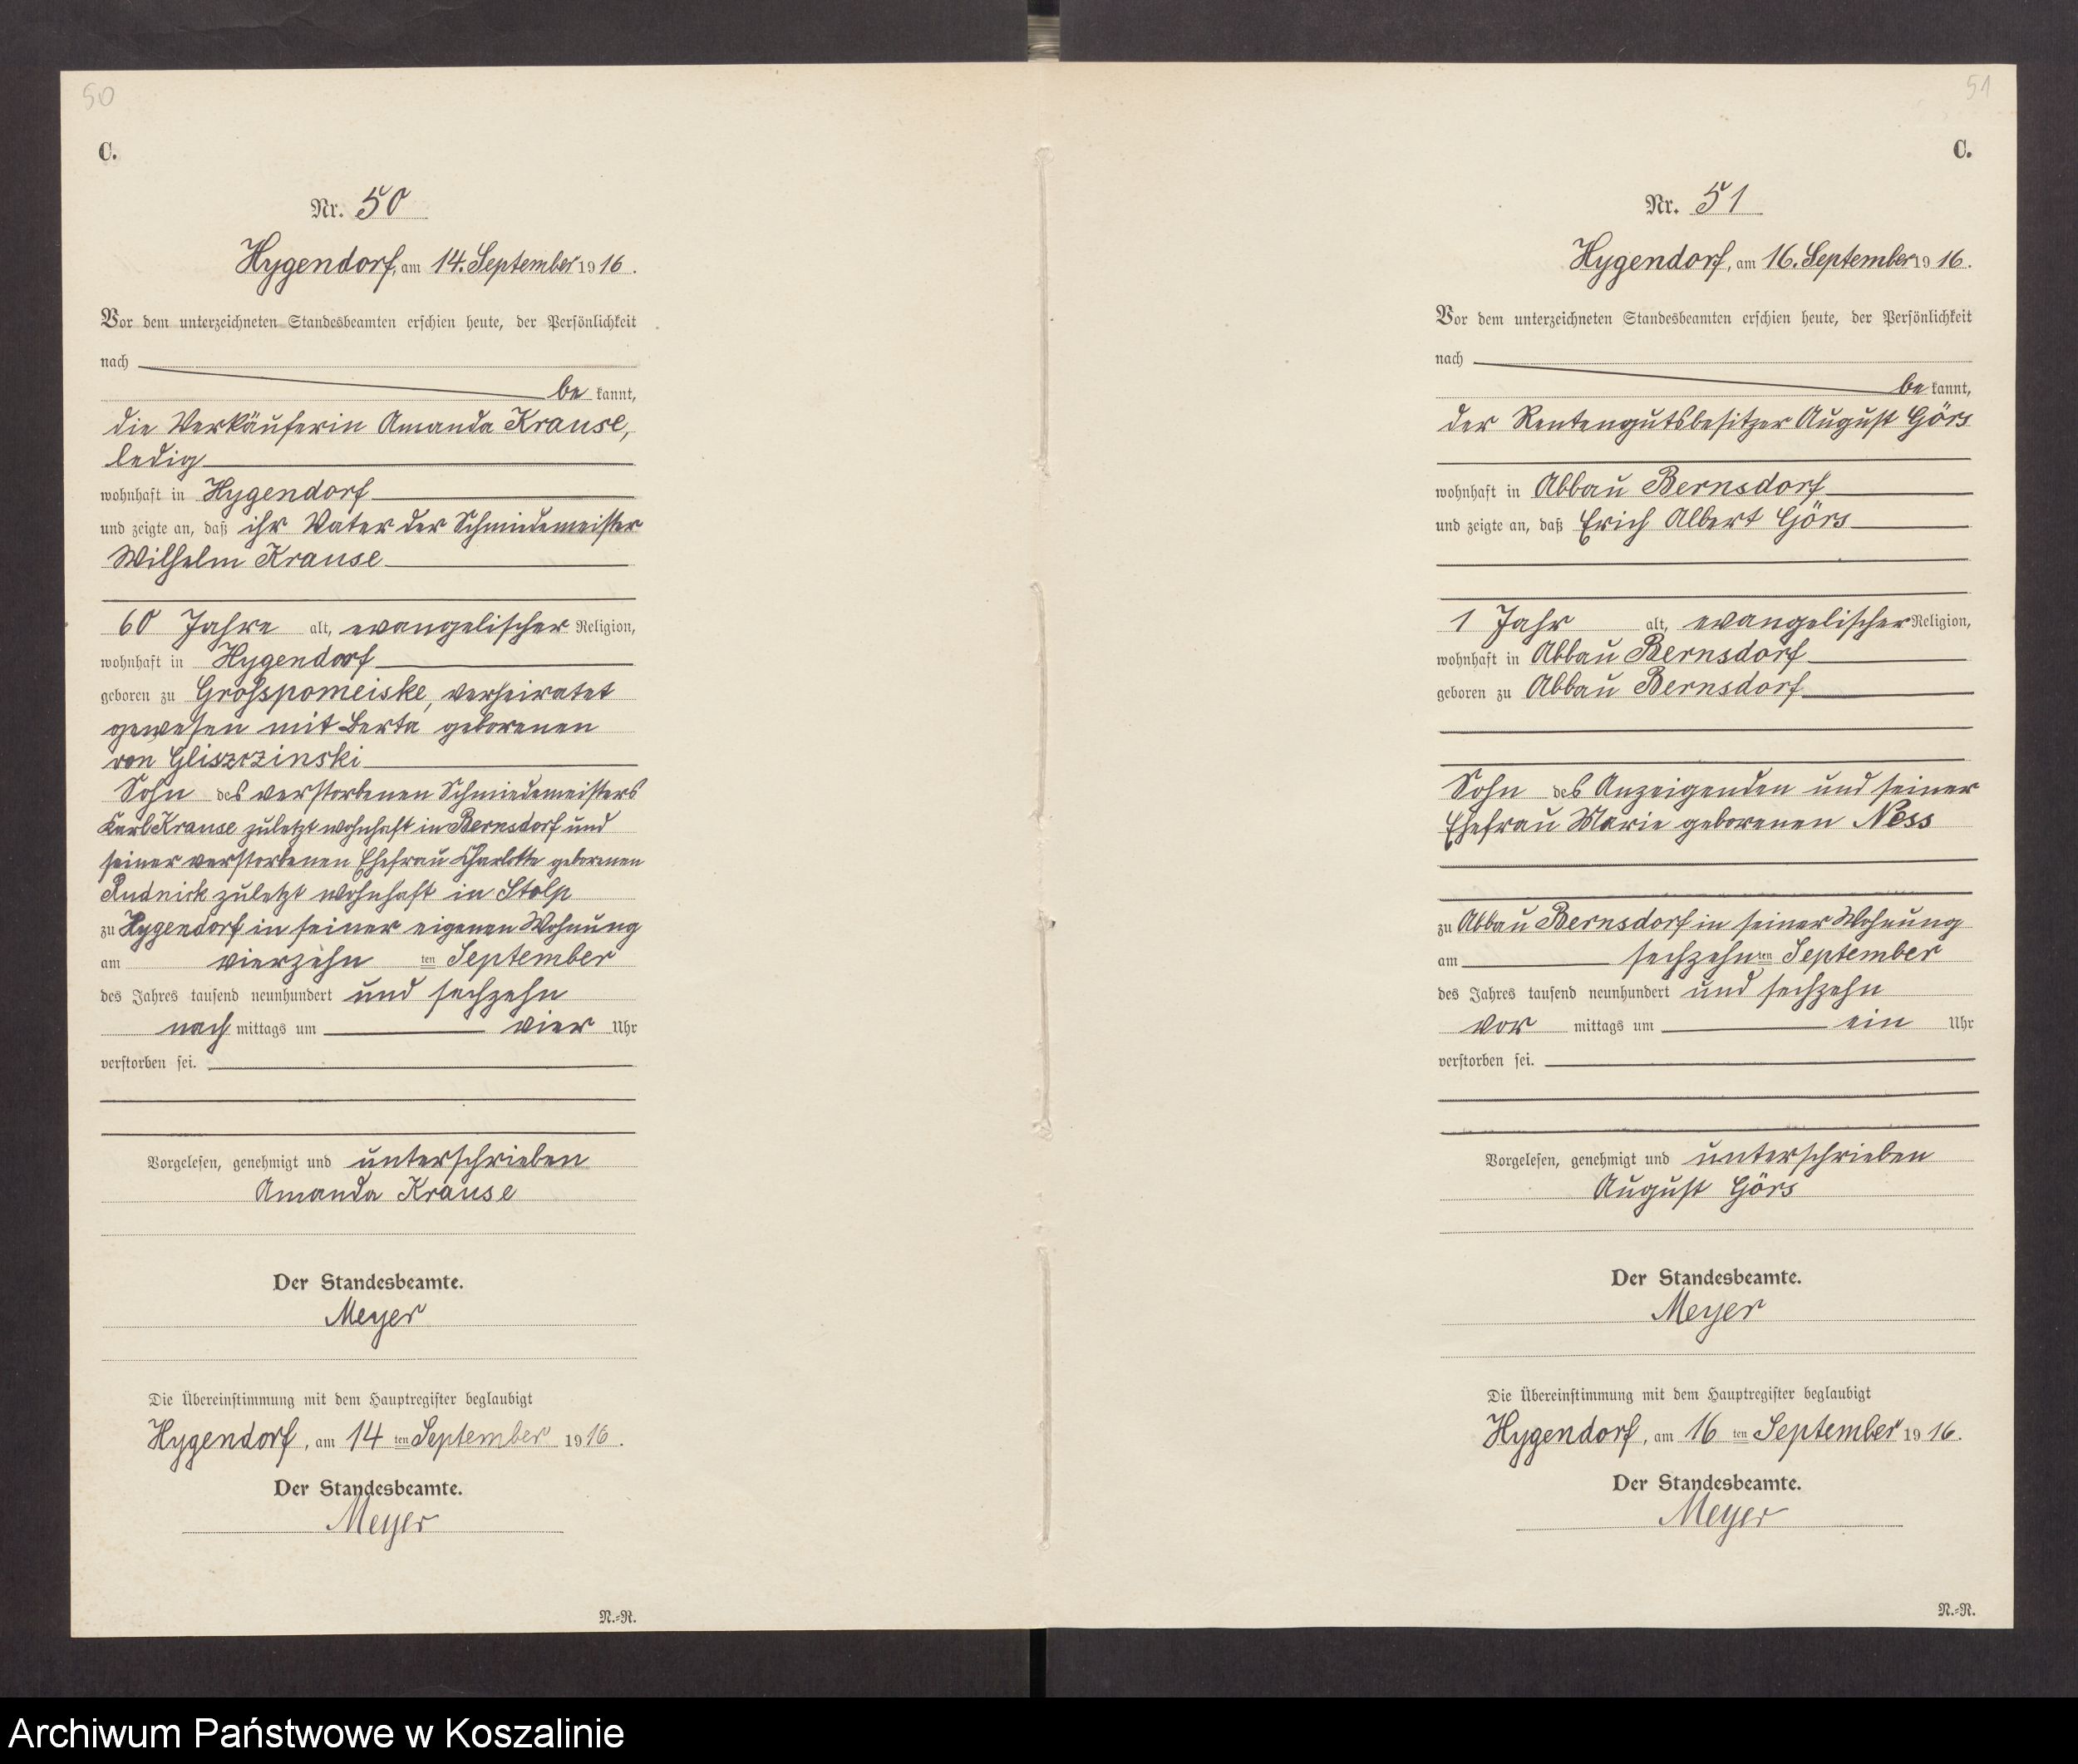 50
C.
Nr. 50
Hygendorf, am 14. September 1916.
Vor dem unterzeichneten Standesbeamten erschien heute, der Persönlichkeit
nach
be kannt,
die Verkäuferin Amanda Krause,
ledig
wohnhaft in Hygendorf
und zeigte an, daß ihr Vater der Schmiedemeister
Wilhelm Krause
60 Jahre alt, evangelischer Religion,
wohnhaft in Hygendorf
geboren zu Grosspomeiske, verheiratet
gewesen mit Berta geborenen
von Gliszczinski
Sohn des verstorbenen Schmiedemeisters
Karl Krause zuletzt wohnhaft in Bernsdorf und
seiner verstorbenen Ehefrau Charlotte geborenen
Rudnick zuletzt wohnhaft in Stolp
zu Hygendorf in seiner eigenen Wohnung
am vierzehn ten September
des Jahres tausend neunhundert und sechzehn
nach mittags um vier Uhr
verstorben sei.
Vorgelesen, genehmigt und unterschrieben
Amanda Krause
Der Standesbeamte.
Meyer
Die Übereinstimmung mit dem Hauptregister beglaubigt
Hygendorf, am 14 ten September 1916.
Der Standesbeamte.
Meyer
N.-R.
51
C.
Nr. 51
Hygendorf, am 16. September 1916.
Vor dem unterzeichneten Standesbeamten erschien heute, der Persönlichkeit
nach
be kannt,
der Rentengutsbesitzer August Görs
wohnhaft in Abbau Bernsdorf
und zeigte an, daß Erich Albert Görs
1 Jahr alt, evangelischer Religion,
wohnhaft in Abbau Bernsdorf
geboren zu Abbau Bernsdorf
Sohn des Anzeigenden und seiner
Ehefrau Marie geborenen Ness
zu Abbau Bernsdorf in seiner Wohnung
am sechzehn ten September
des Jahres tausend neunhundert und sechzehn
vor mittags um ein Uhr
verstorben sei.
Vorgelesen, genehmigt und unterschrieben
August Görs
Der Standesbeamte.
Meyer
Die Übereinstimmung mit dem Hauptregister beglaubigt
Hygendorf, am 16 ten September 1916.
Der Standesbeamte.
Meyer
N.-R.
Archiwum Państwowe w Koszalinie